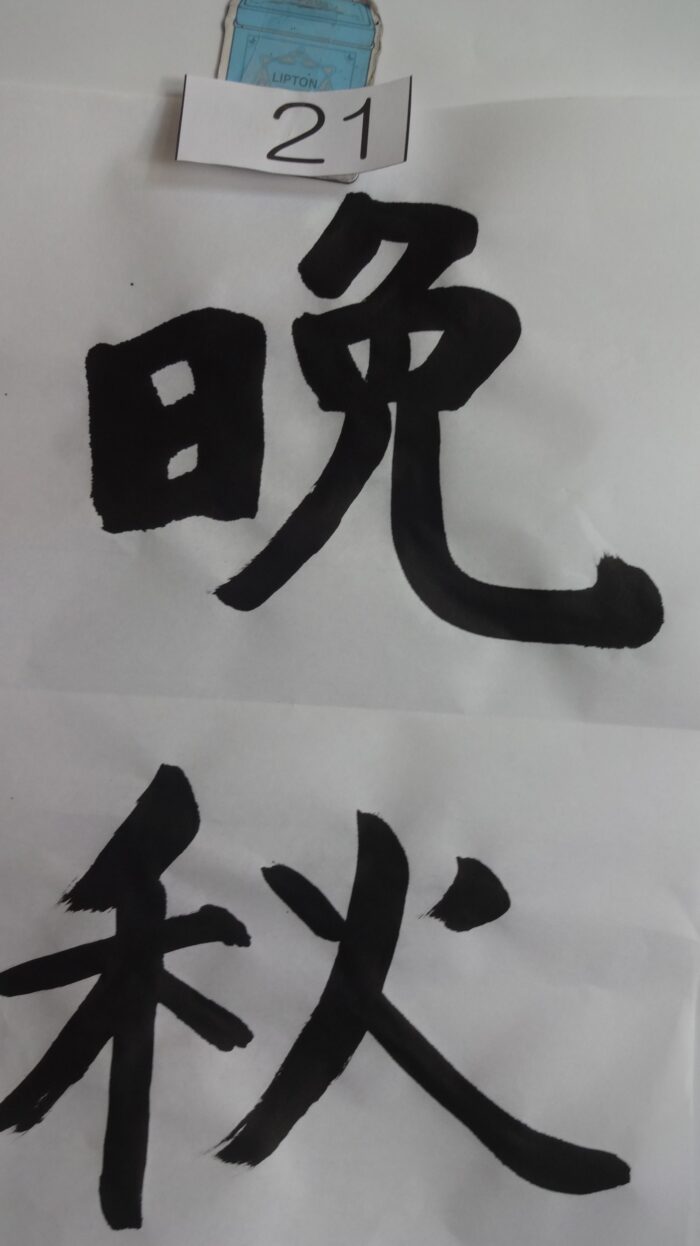 LIPTON
21
晩
秋